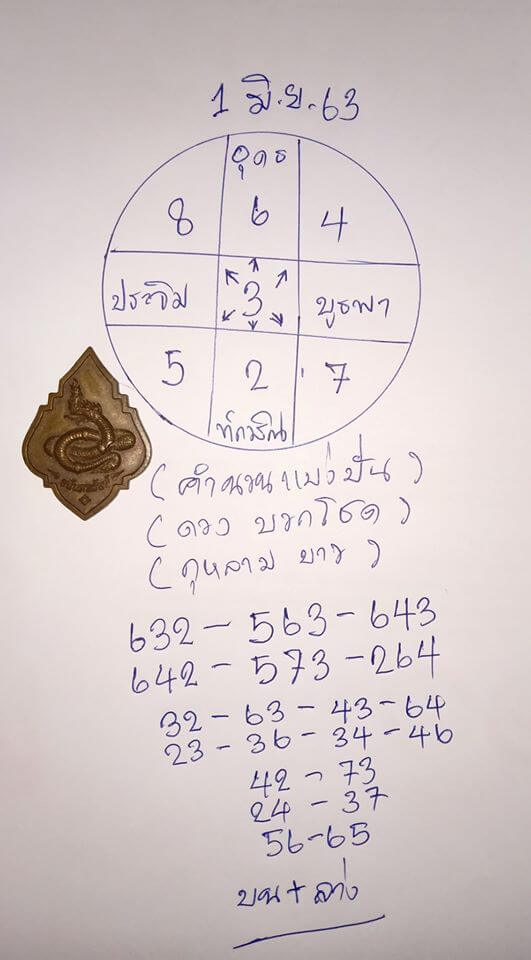 1 มิ.ย.63
อุดร
8 6 4
ประจิม 3 บูรพา
5 2 7
ทักษิณ
(คำนวนแบ่งปัน)
(ดวง บวกโชค)
(กุหลาบ ขาว)
632 - 563 - 643
642 - 573 - 264
32 - 63 - 43 - 64
23 - 36 - 34 - 46
42 - 73
24 - 37
56-65
บน + ล่าง